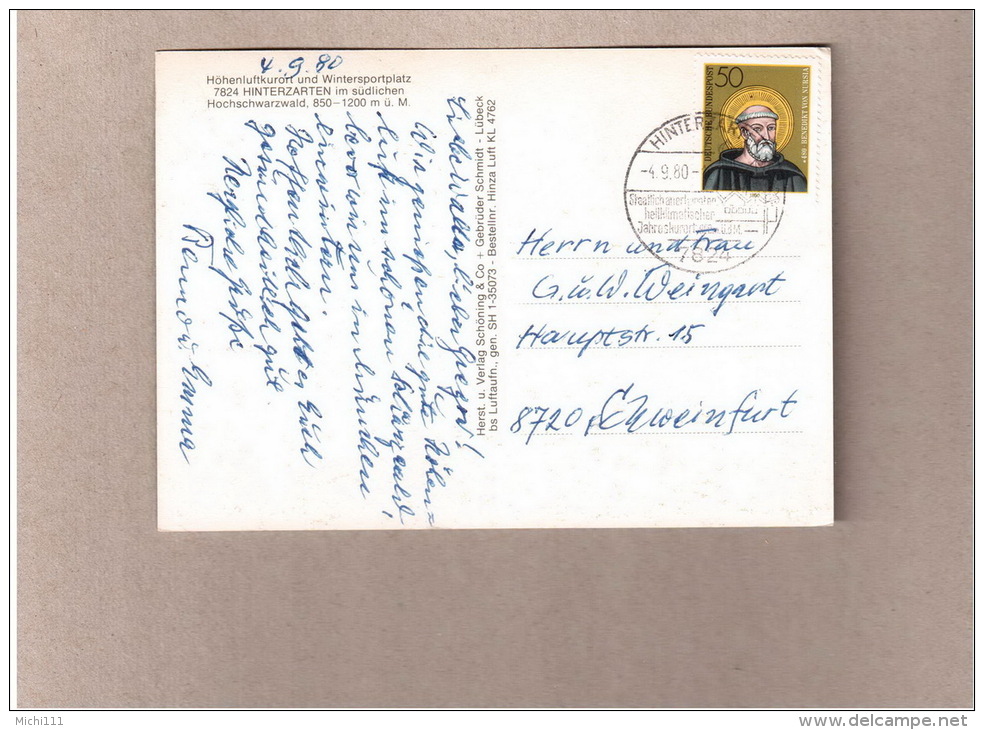 4.9.80
Höhenluftkurort und Wintersportplatz
7824 HINTERZARTEN im südlichen
Hochschwarzwald, 850–1200 m ü. M.
Liebe Walla, lieber Gregor!
Wir genießen die gute Höhen=
luft im schönen Schwarzwald,
bevor wir uns in München
einwintern.
Hoffentlich geht es Euch
gesundheitlich gut.
Herzliche Grüße
Benno u. Emma
Herst. u. Verlag Schöning & Co + Gebrüder Schmidt - Lübeck
bs Luftaufn., gen. SH 1-35073 - Bestellnr. Hinza Luft KL 4762
DEUTSCHE BUNDESPOST
50
*480 BENEDIKT VON NURSIA
-4.9.80-
Staatlich anerkannter
heilklimatischer
Jahreskurort
7824
Herrn und Frau
G. u. W. Weingart
Hauptstr. 15
8720 Schweinfurt
Michi111
www.delcampe.net